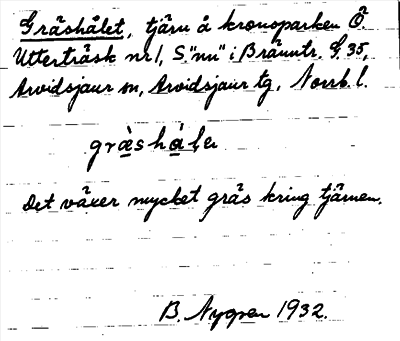 Gräshålet, tjärn å kronoparken Ö.
Utterträsk nr 1, S."nn" i Bränntr. G. 35,
Arvidsjaur sn, Arvidsjaur tg, Norrb. l.
Det växer mycket gräs kring tjärnen.
B. Nygren 1932.